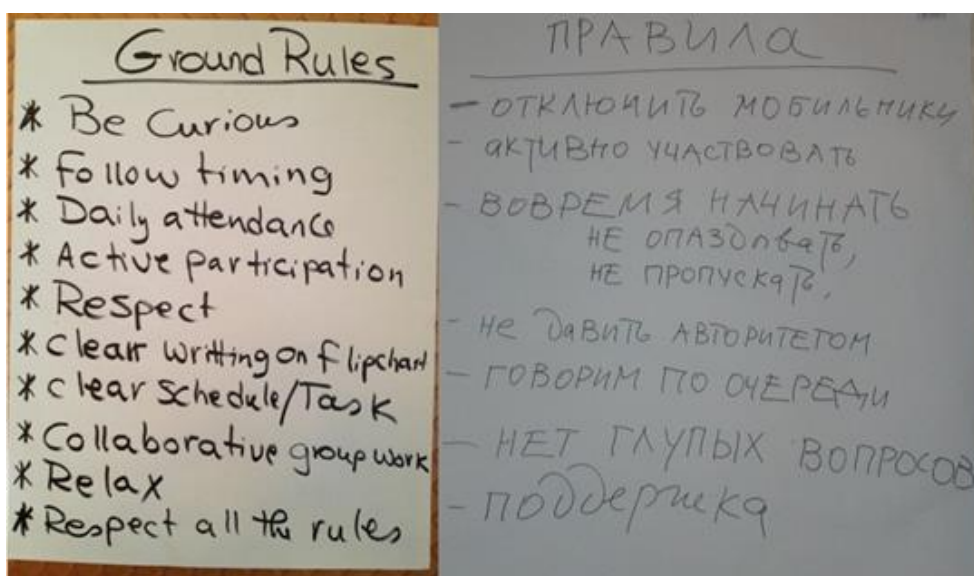 Ground Rules
* Be Curious
* Follow timing
* Daily attendance
* Active participation
* Respect
* Clear writting on flipchart
* Clear Schedule/Task
* Collaborative group work
* Relax
* Respect all the rules
ПРАВИЛА
- ОТКЛЮЧИТЬ МОБИЛЬНИКИ
- АКТИВНО УЧАСТВОВАТЬ
- ВОВРЕМЯ НАЧИНАТЬ
НЕ ОПАЗДЫВАТЬ,
НЕ ПРОПУСКАТЬ,
- НЕ ДАВИТЬ АВТОРИТЕТОМ
- ГОВОРИМ ПО ОЧЕРЕДИ
- НЕТ ГЛУПЫХ ВОПРОСОВ
- поддержка